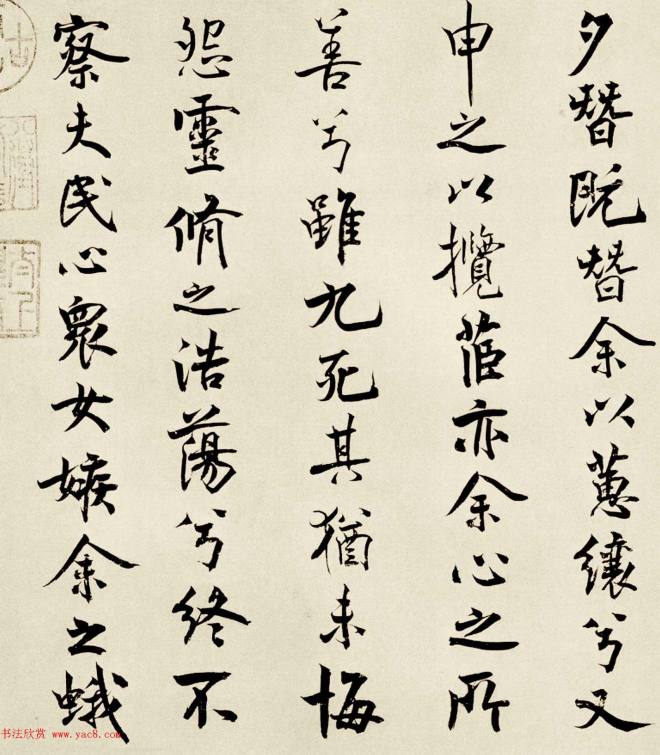 夕替既替余以蕙纕兮又
申之以攬茝亦余心之所
善兮雖九死其猶未悔
怨靈脩之浩蕩兮終不
察夫民心衆女嫉余之蛾
书法欣赏 www.yac8.com